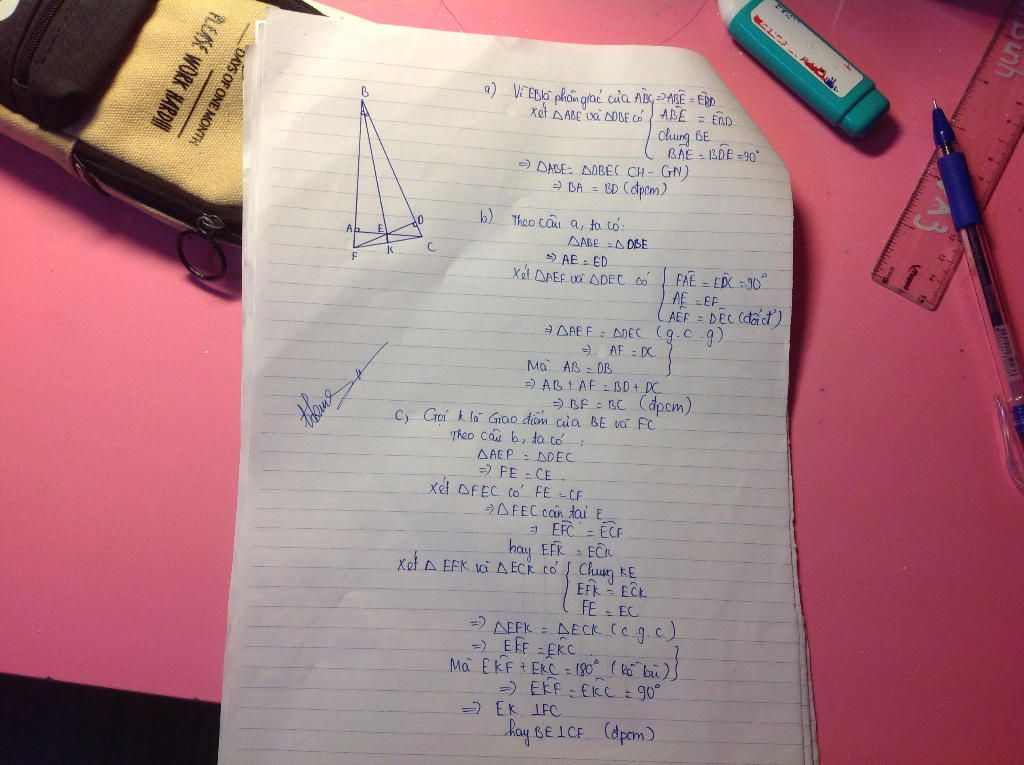 PLEASE WORK HARD!!!
DAYS OF ONE MONTH
B
A
E
D
F
K
C
a) Vì EB là phân giác của ABC => ABE = EBD
Xét △ABE và △DBE có
ABE = EBD
Chung BE
BAE = BDE = 90°
=> △ABE = △DBE ( CH - GN)
=> BA = BD (đpcm)
b) Theo câu a, ta có:
△ABE = △DBE
=> AE = ED
Xét △AEF và △DEC có
FAE = EDC = 90°
AE = EF
AEF = DEC (đối đ')
=> △AEF = △DEC (g.c.g)
=> AF = DC
Mà AB = DB
=> AB + AF = BD + DC
=> BF = BC (đpcm)
c, Gọi k là Giao điểm của BE và FC
Theo câu b, ta có :
△AEF = △DEC
=> FE = CE .
Xét △FEC có FE = CF
=> △FEC cân tại E
=> EFC = ECF
hay EFK = ECK
Xét △ EFK và △ECK có
Chung KE
EFK = ECK
FE = EC
=> △EFK = △ECK (c.g.c)
=> EKF = EKC .
Mà EKF + EKC = 180° (kề bù)
=> EKF = EKC = 90°
=> EK ⊥ FC
hay BE ⊥ CF (đpcm)